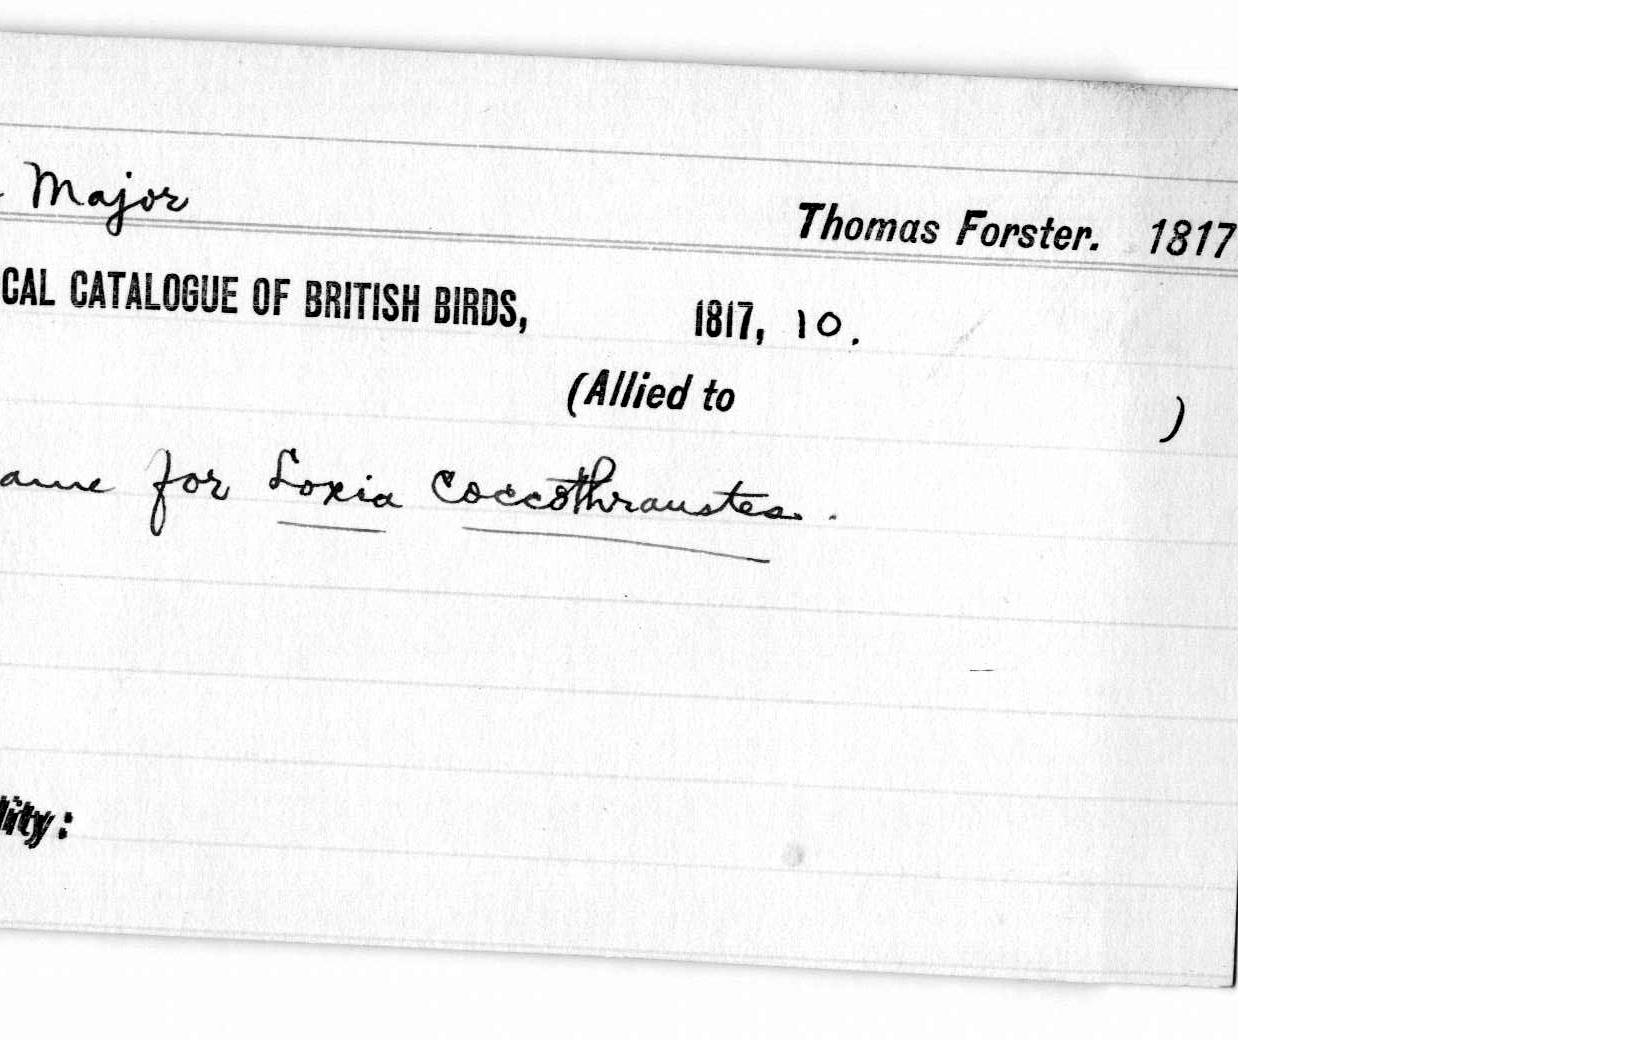 Major
Thomas Forster. 1817
CAL CATALOGUE OF BRITISH BIRDS, 1817, 10.
(Allied to )
ame for Loxia Coccothraustes.
lity: